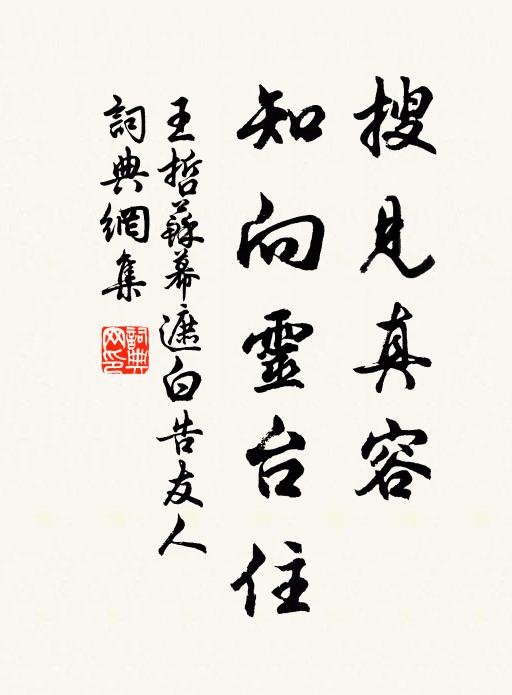 搜見真容
知向靈台住
王哲蘇幕遮自告友人
詞典網集
詞典網印